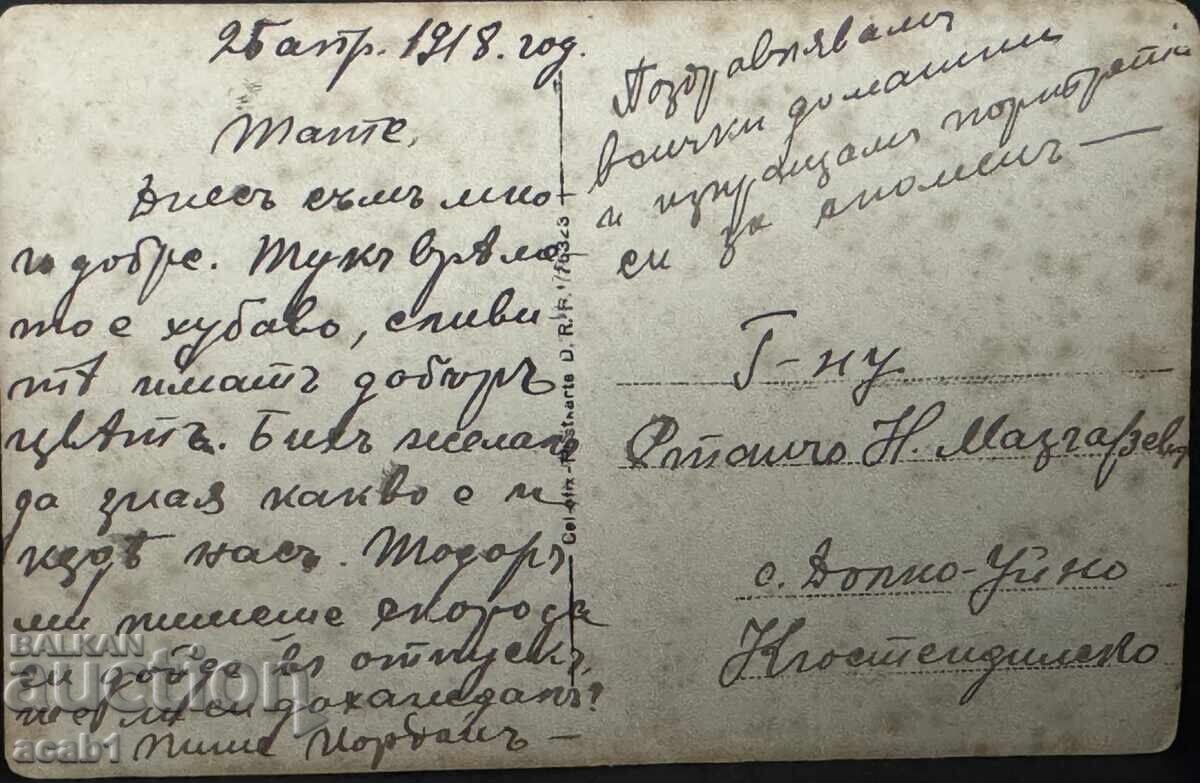 25 апр. 1918. год.
Тате,
Днесъ съмъ мно-
го добре. Тукъ врѣме
то е хубаво, сливи
тѣ иматъ добъръ
цвѣтъ. Бихъ желалъ
да зная какво е и
къдѣ насъ. Тодоръ
ми пишеше скоро да
си дойде въ отпускъ,
ли си дохаждалъ?
Пише Йорданъ —
Поздравлявамъ
всички домашни
и изпращамъ портрета
си за споменъ —
Г-ну
Стойчо Н. Мазгалевъ
с. Долно-Уйно
Кюстендилско
Cellofix-Postkarte D. R. P.
BALKAN
auction
acab1